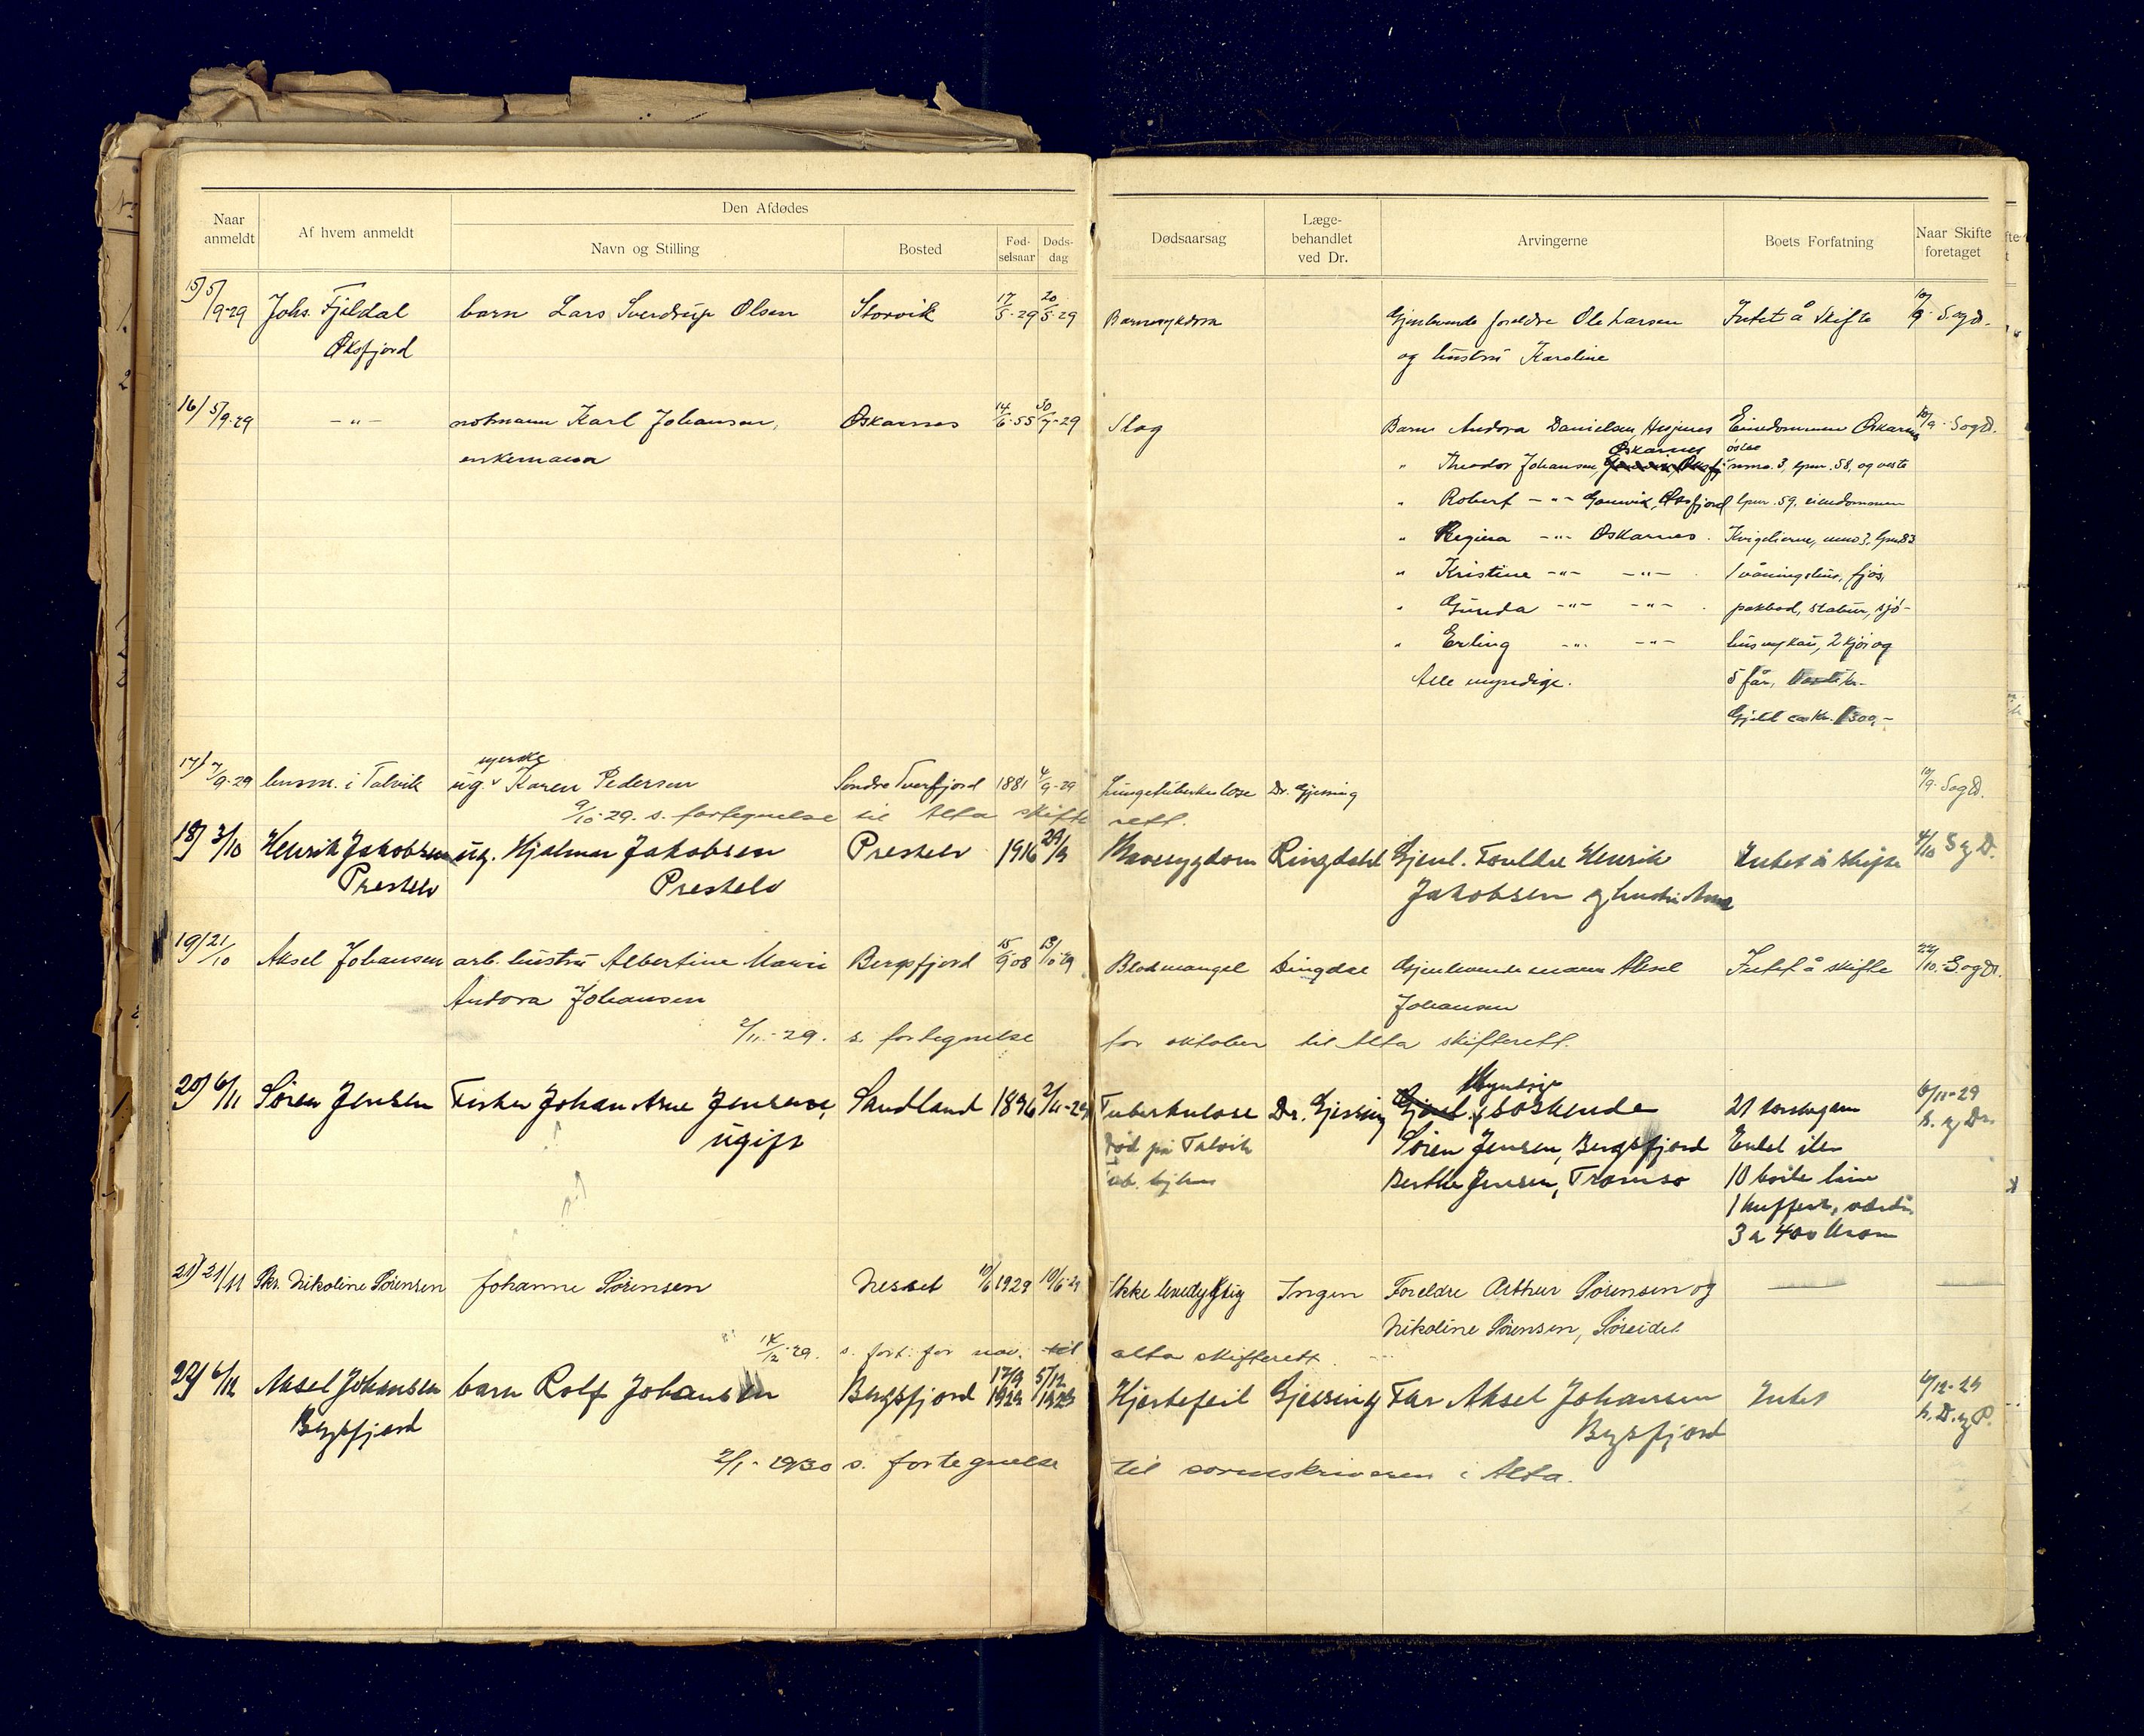 Naar anmeldt
Af hvem anmeldt
Den Afdødes
Navn og Stilling
Bosted
Fød-selsaar
Døds-dag
Dødsaarsag
Læge-behandlet ved Dr.
Arvingerne
Boets Forfatning
Naar Skifte foretaget
15) 5/9-29 Johs. Fjeldal barn Lars Sverdrup Olsen Storvik 17/5-29 20/5-29 Barnesykdom Gjenlevende foreldre Ole Larsen Intet å skifte 10/9 S. og D.
Øksfjord og hustru Karoline
16) 5/9-29 -"- notmann Karl Johansen, Oskarnes 14/6-55 30/7-29 Slag Barn Andora Danielsen, Eiendommen Oskarnes 10/9 S og D.
enkemann Oskarnes østre
" Theodor Johansen, nrno. 3, lpnr. 58, og veste
" Robert -"- Øksfjord lpnr. 59, eiendommen
" Regina -"- Oskarnes
" Kristine -"- -"- 1 våningshus, fjøs,
" Gunda -"- -"- stabur, sjø-
" Erling -"- -"- hus m/kai, 2 kjør og
Alle myndige. 5 får,
Gjeld ca kr. 1300,-
syerske
17) 7/9-29 lensm. i Talvik ug. Karen Pedersen Søndre Tverfjord 1881 4/9-29 Lungetuberkulose Dr. Gjessing 10/9 S og D.
9/10-29. s. fortegnelse til Alta skifterett.
18) 3/10 Henrik Jakobsen ug. Hjalmar Jakobsen Prestelv 1916 Ringdahl Gjenl. Foreldre Henrik Intet å skifte 4/10 S og D.
Prestelv Prestelv Jakobsen og hustru Anna
19) 21/10 Aksel Johansen arb. hustru Albertine Marie Bergsfjord 15/9 08 13/10-29 Blodmangel Gjenlevende mann Aksel Intet å skifte 22/10. S og D.
Andora Johansen Johansen
2/11-29. s. fortegnelse for oktober til Alta skifterett.
Myndige
20) 6/11 Søren Jensen Fisker Johan Arne Jensen, Sandland 1896 2/11-29 Tuberkulose Dr. Gjessing Gjenl. søskende 21 torskegarn 6/11-29
ugift Død på Talvik Søren Jensen, Bergsfjord Endel iler S. og D.
tub. hjem Berthe Jensen, Tromsø 10 line
1 kuffert, verdi
3 a 400 kroner
21) 21/11 Nikoline Sørensen Johanne Sørensen Nesset 10/6 1929 10/6-29 Ikke levedygtig Ingen Foreldre Arthur Sørensen og
Nikoline Sørensen, Søreidet
14/12-29. s. fort. for nov. til alta skifterett.
22) 6/12 Aksel Johansen barn Rolf Johansen Bergsfjord 17/9 1929 5/12 1929 Hjertefeil Gjessing Far Aksel Johansen Intet 6/12-29
Bergsfjord Bergsfjord
2/1-1930 s. fortegnelse til sorenskriveren i Alta.